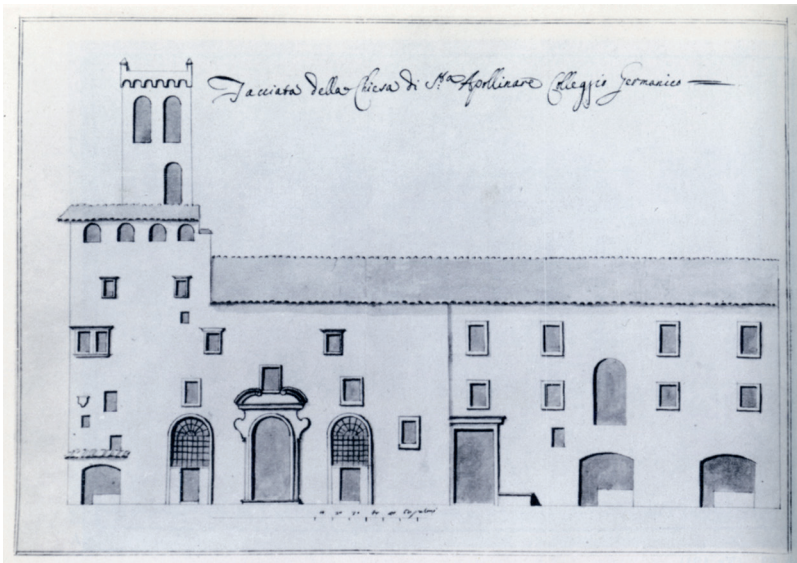 Facciata della Chiesa di S.ta Apollinare Colleggio Germanico